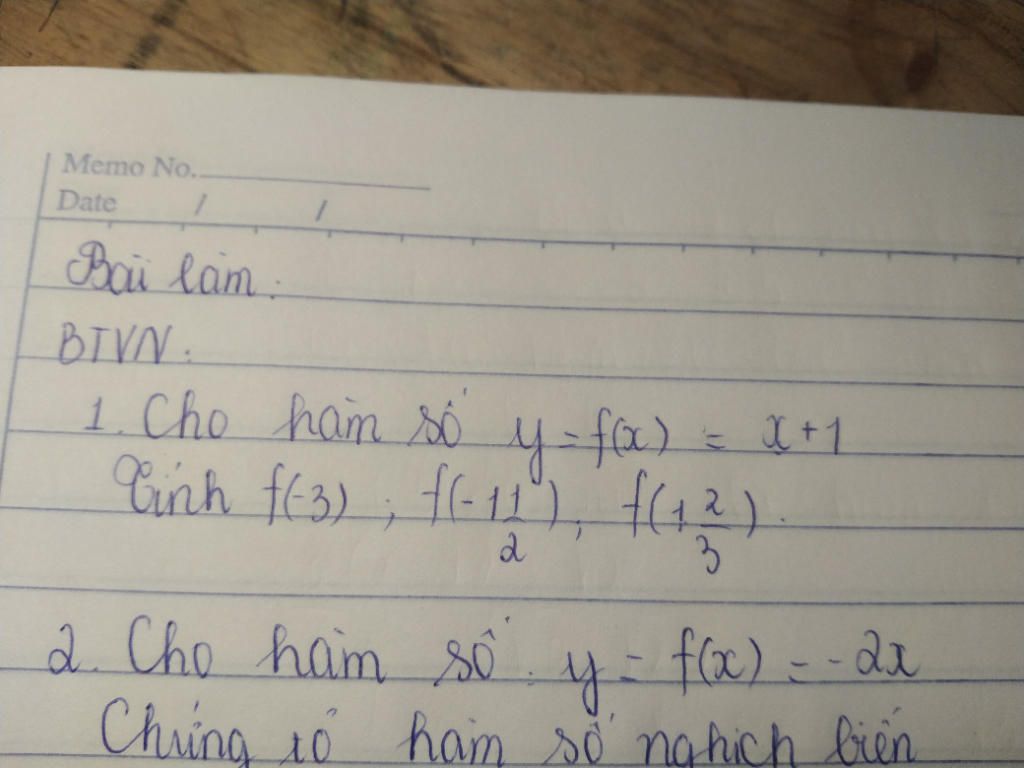 Memo No.
Date / /
Bài làm:
BTVN:
1. Cho hàm số y = f(x) = x + 1
Tính f(-3) ; f(-1 1/2) ; f(1 2/3).
2. Cho hàm số : y = f(x) = -2x
Chứng tỏ hàm số nghịch biến